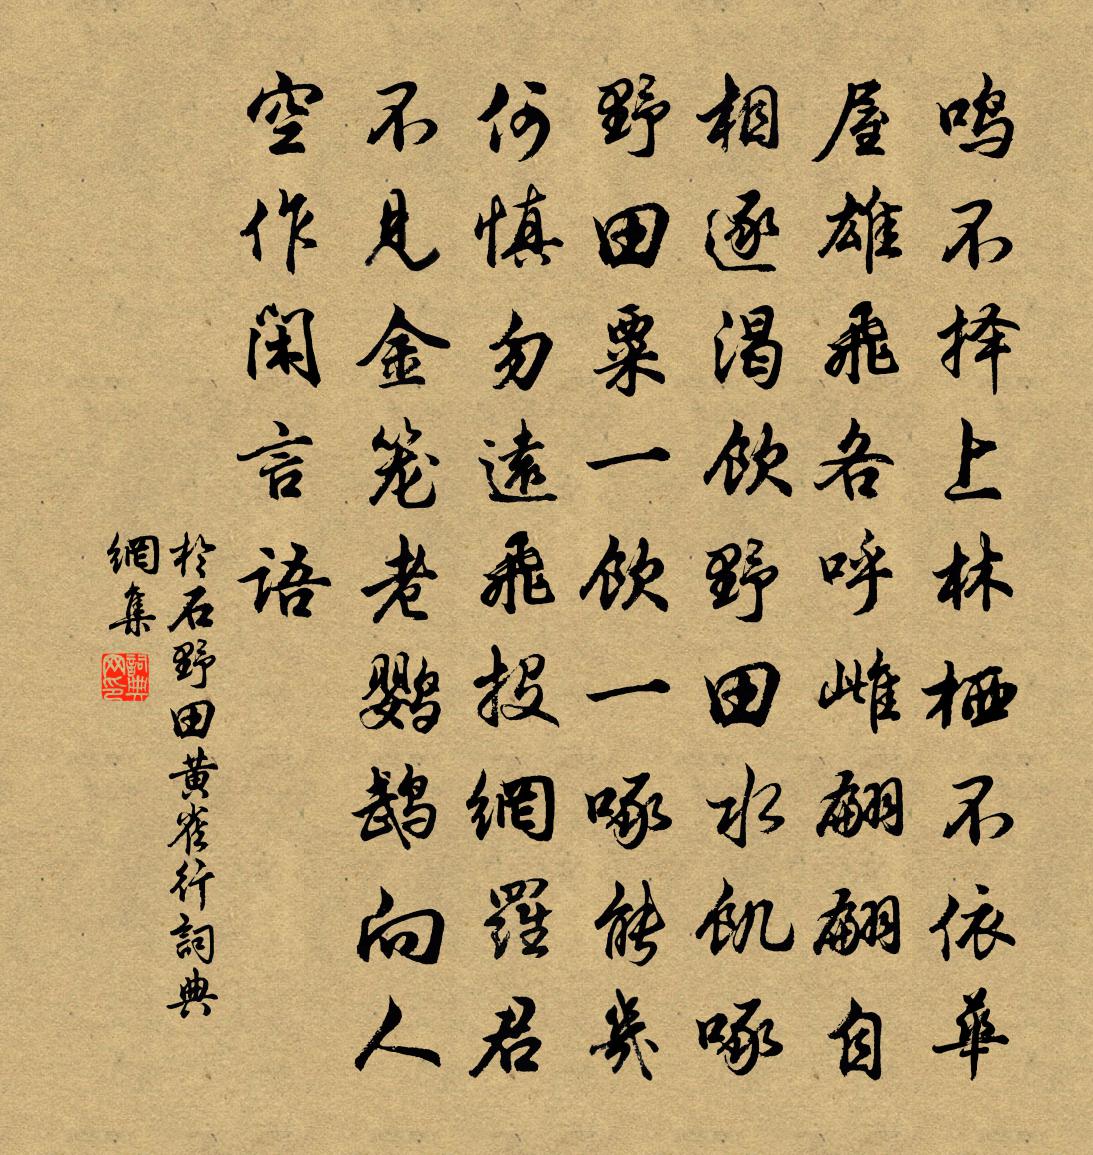 鸣不择上林栖不依华
屋雄飛各呼雌翩翩自
相逐渴飲野田水飢啄
野田粟一飲一啄能幾
何慎勿遠飛投網羅君
不見金笼老鹦鹉向人
空作闲言語
於石野田黄雀行詞典
網集
詞典
网印